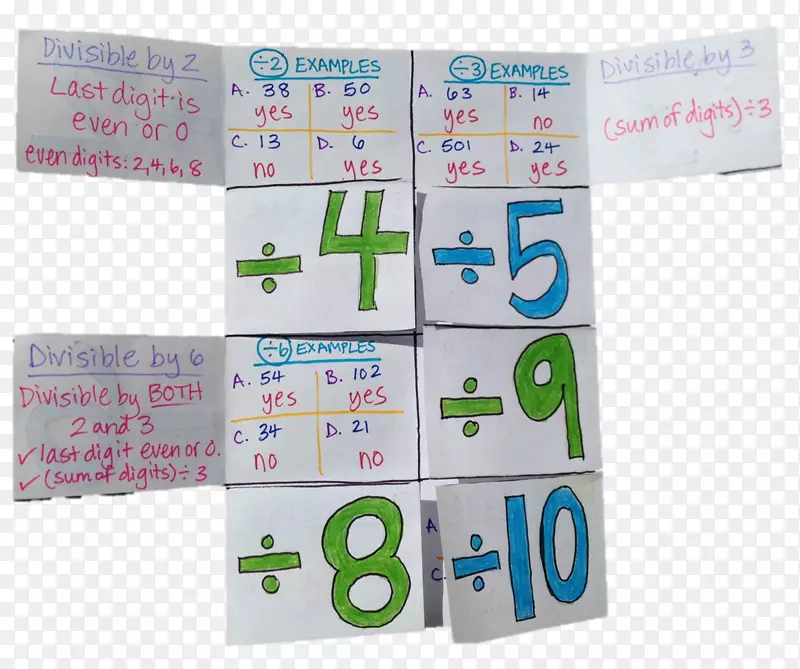 Divisible by 2
Last digit is
even or 0
even digits: 2,4,6,8
÷2 EXAMPLES
A. 38 B. 50
yes yes
C. 13 D. 6
no yes
÷3 EXAMPLES
A. 63 B. 14
yes no
C. 501 D. 24
yes yes
Divisible by 3
(sum of digits)÷3
÷4
÷5
Divisible by 6
Divisible by BOTH
2 and 3
✓ last digit even or 0.
✓ (sum of digits)÷3
÷6 EXAMPLES
A. 54 B. 102
yes yes
C. 34 D. 21
no no
÷9
÷8
A
C.
÷10